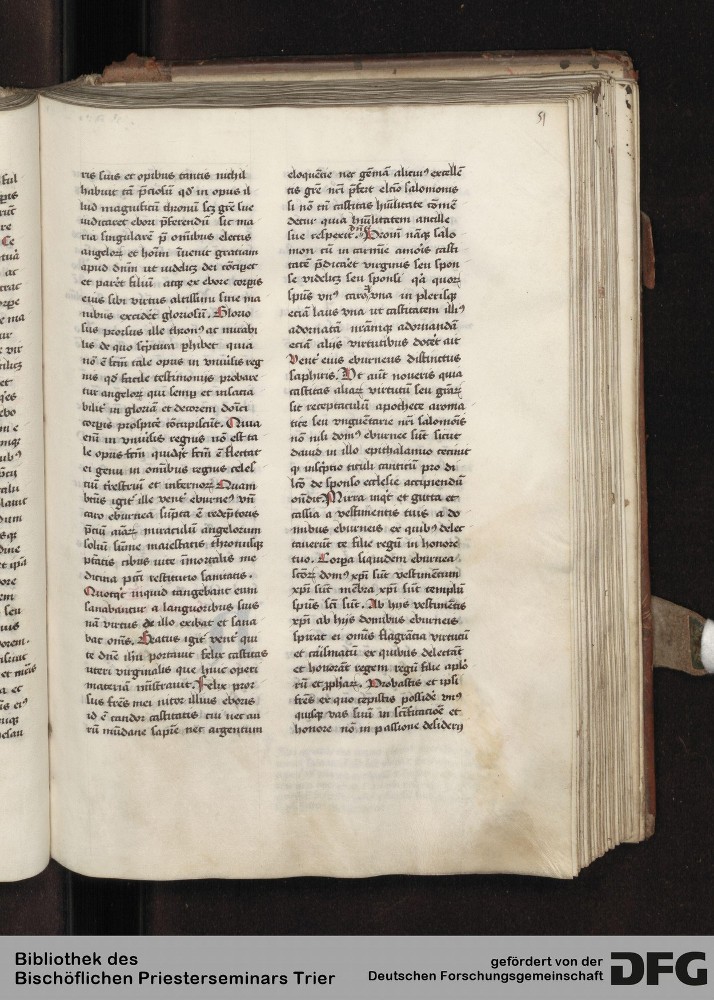 51
ris suis et opibus tantis nichil
habuit tā p̄ciosū qd' in opus il
lud magnificū thronū scꝫ grē sue
iudicaret ebori p̄ferendū sic ma
ria singularē p̄ omībus electis
angeloꝝ et hoīm īuenit gratiam
apud dnm ut videlicꝫ dei cōciꝑet
et parēt filiū atqꝫ ex ebore corꝑis
eius sibi virtus altissimi sine ma
nibus excidēt gloriosū. Glorio
sus prorsus ille thronꝰ ac mirabi
lis de quo scptura ꝓhibet quia
nō ē fcm̄ tale opus in vniūsis reg
nis qd' facile testimoniis probare
tur angeloꝝ qui semꝑ et insacia
bilit' in gloriā et decorem dn̄ici
corꝑis prospicē cōcupiscūt. Quia
enī in vniūsis regnis nō est ta
le opus fcm̄ quidqͥt fcm̄ ē flectat'
ei genu in omībus regnis celes
tiū trēstriū et infernoꝝ. Quam
btūs igit' ille vent' eburneꝰ vn̄
caro eburnea sūpta ē redēptoris
p̄ciū aīaꝝ miraculū angelorum
soliū sūme maiestatis thronusqꝫ
ptātis cibus vite īmortalis me
dicina pctī restitutio sanitatis.
Quotqͦt inquid tāngebant eum
sanabantur a languoribus suis
nā virtus de illo exibat et sana
bat omīs. Beatus igit' vent' qui
te dnē ihū portauit felix castitas
vteri virginalis que huic operi
materiā mīstrauit. Felix pror
sus frēs mei nitor illius eboris
id ē candor castitatis cui nec au
rū mūdane sapīe nec argentum
eloquētie nec gēmā alicuiꝰ excellē
tis grē nrī p̄fert elcio salomonis
si nō cū castitas hūilitate cōmē
detur quia hūilitatem ancille
sue respexit dns. Decorem nāqꝫ salo
mon cū in carmīe amoris casti
tatē p̄dicaret virginis seu spon
se videlicꝫ seu sponsi q'a quoꝝ
spūs vnꝰ caro vna in plerisqꝫ
eciā laus vna ut castitatem illiꝰ
adornatā nrāmqꝫ adornandā
eciā aliis virtutibus docet ait
Vent' eius eburneus distinctus
saphiris. Ut aūt noueris quia
castitas aliaꝝ virtutū seu gr̄aꝝ
sit receptaculū apothece aroma
tice seu vnguētarie nrī salomōis
nō nisi domꝰ eburnee sūt sicut
dauid in illo epithalamio cecinit
qͥ inscptio tituli canticū pro di
lcō de sponso ecclesie accipiendū
on̄dit Mirra inqt et gutta et
cassia a vestimentis tuis a do
mibus eburneis ex quibꝰ delec
tauerūt te filie regū in honore
tuo. Corꝑa siquidem eburnea
scōꝝ domꝰ xp̄i sūt vestimētum
xp̄i sūt mēbra xp̄i sūt templū
spūs scī sūt. Ab hijs vestimētis
xp̄i ab hijs domibus eburneis
spirat ei omīs flagrātia virtutū
et carismatū ex quibus delectāt
et honorāt regem regū filie apl'o
rū et ꝓphaꝝ. Probastis et ipsi
frēs et quo cepistis possidē vnꝰ
quisqꝫ vas suū in scīficacōe et
honore nō in passione desiderij
Bibliothek des
Bischöflichen Priesterseminars Trier
gefördert von der
Deutschen Forschungsgemeinschaft
DFG